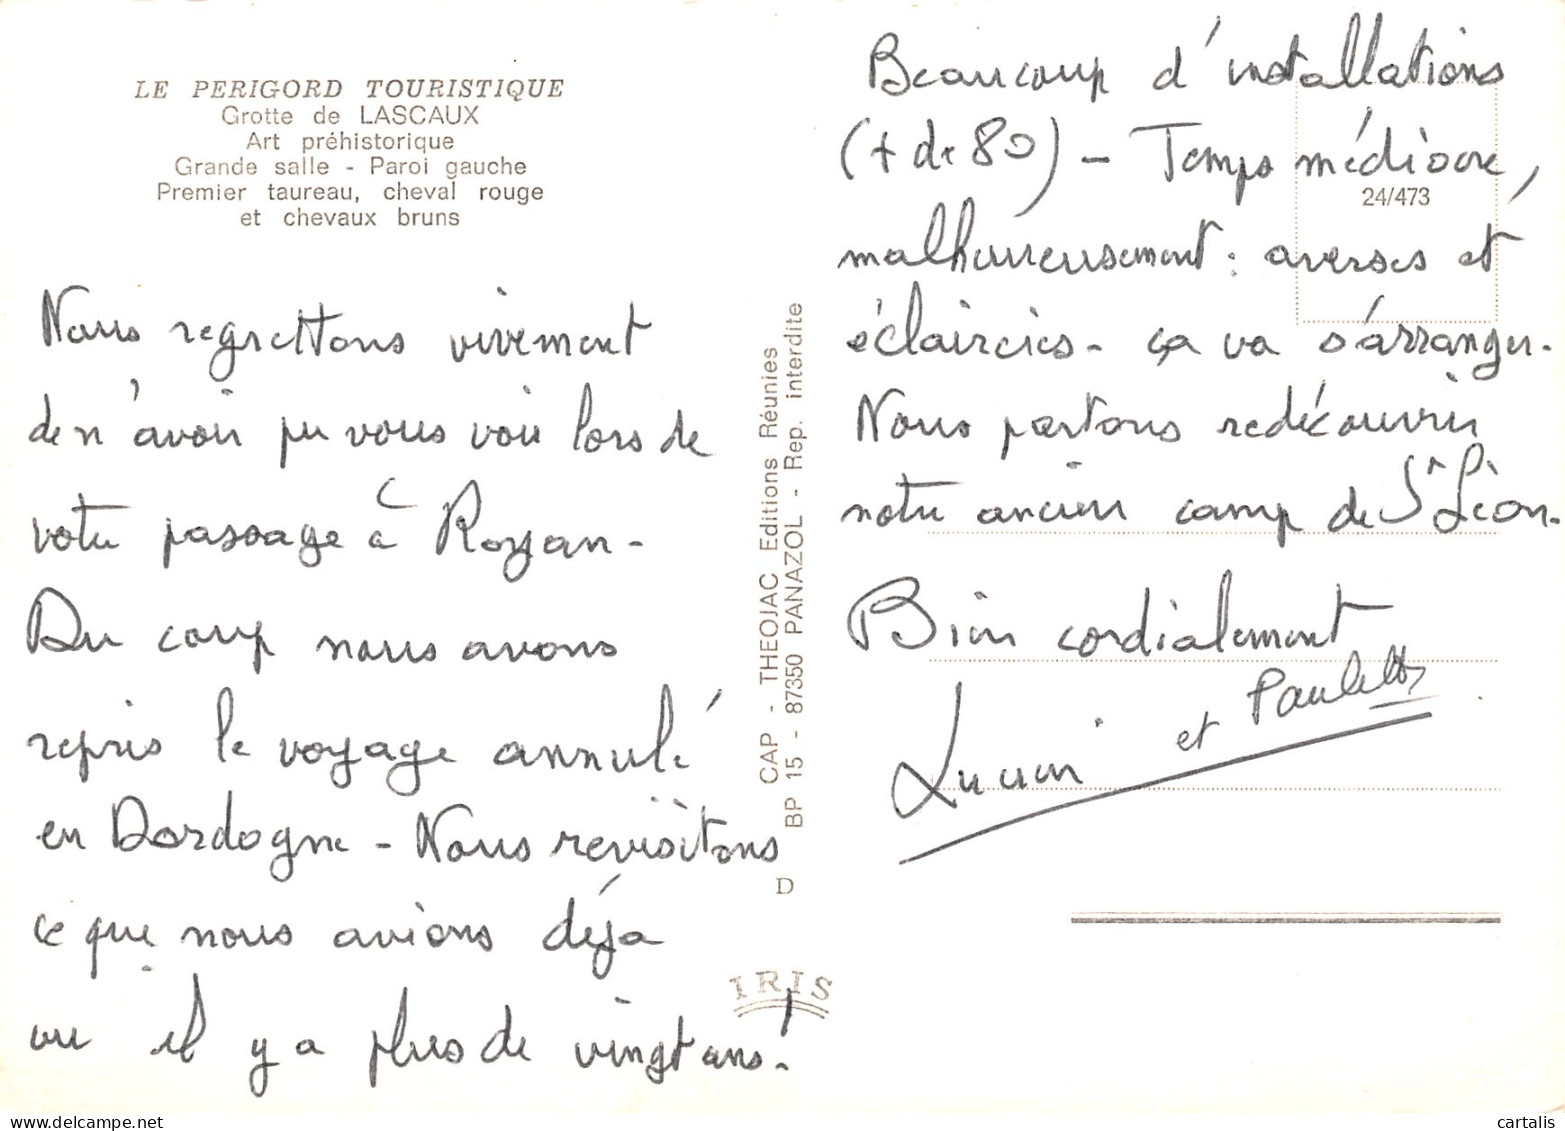 LE PERIGORD TOURISTIQUE
Grotte de LASCAUX
Art préhistorique
Grande salle - Paroi gauche
Premier taureau, cheval rouge
et chevaux bruns
Nous regrettons vivement
de n'avoir pu vous voir lors de
votre passage à Royan -
Du coup nous avons
repris le voyage annulé
en Dordogne - Nous revisitons
ce que nous avions déjà
vu il y a plus de vingt ans !
CAP - THEOJAC Editions Réunies
BP 15 - 87350 PANAZOL - Rep. interdite
D
IRIS
24/473
Beaucoup d'installations
(+ de 80) - Temps médiocre,
malheureusement : averses et
éclaircies - ça va s'arranger.
Nous partons redécouvrir
notre ancien camp de St Léon.
Bien cordialement
Lucien et Paulette
www.delcampe.net
cartalis